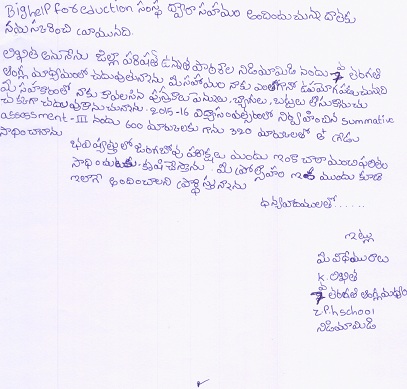 Bighelp For eduction సంస్థ ద్వారా సహాయం అందించుచున్న దాతకు
నమస్కరించి వ్రాయునది.
లిఖిత అనునేను జిల్లా పరిషత్ ఉన్నత పాఠశాల నిడిమామిడి నందు 7 తరగతి
ఆంగ్ల మాధ్యమంలో చదువుతున్నాను మీ సహాయం నాకు ఎంతగానో ఉపయోగపడుచున్నది
మీ సహకారంతో నాకు కావలసిన పుస్తకాలు పెన్నులు, బ్యాగులు, బట్టలు తీసుకొని
చక్కగా చదువుకొనుచున్నాను. 2015-16 విద్యాసంవత్సరంలో నిర్వహించిన summative
assessment-III నందు 600 మార్కులకు గాను 320 మార్కులతో గ్రేడు
సాధించినాను
భవిష్యత్తులో జరగబోవు పరీక్షలు యందు ఇంకా చాలా మంచి ఫలితం
సాధించుటకు కృషి చేస్తాను. మీ ప్రోత్సాహం ఇక ముందు కూడా
ఇలాగే అందించాలని ప్రార్థిస్తున్నాను
ధన్యవాదములతో.....
ఇట్లు
మీ విధేయురాలు
K. లిఖిత
7 తరగతి ఆంగ్లమాధ్యమం
Z.P.h school
నిడిమామిడి